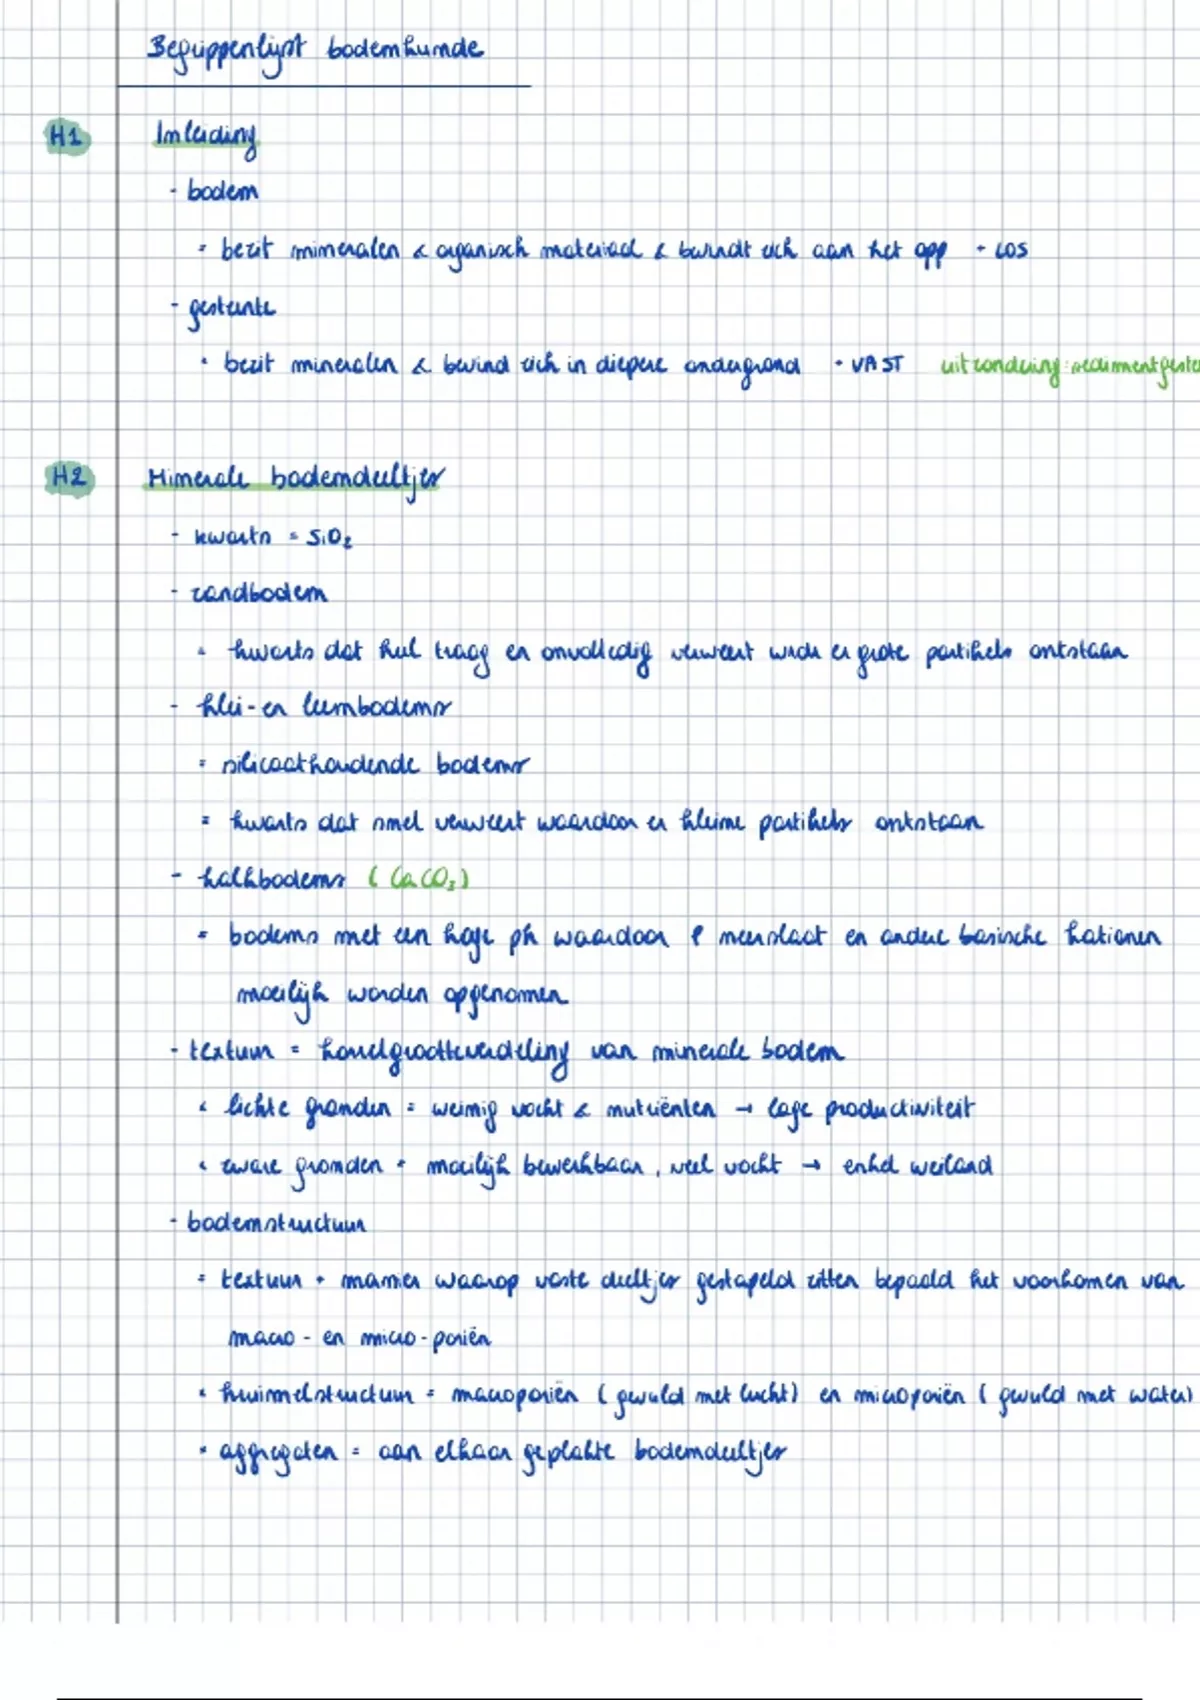 Begrippenlijst bodemkunde
H1 Inleiding
- bodem
= bezit mineralen & organisch materiaal & bevindt zich aan het opp → LOS
- gesteente
• bezit mineralen & bevind zich in diepere ondergrond → VAST uitzondering: sedimentgeste
H2 Minerale bodemdeeltjes
- kwarts = SiO₂
- zandbodem
= kwarts dat heel traag en onvolledig verweert wrdr er grote partikels ontstaan
- klei- en leembodems
= silicaathoudende bodems
= kwarts dat snel verweert waardoor er kleine partikels ontstaan
- kalkbodems (CaCO₃)
= bodems met een hoge ph waardoor P neerslaat en andere basische kationen
moeilijk worden opgenomen
- textuur = korrelgrootteverdeling van minerale bodem
• lichte gronden = weinig vocht & nutriënten → lage productiviteit
• zware gronden = moeilijk bewerkbaar, veel vocht → enkel weiland
- bodemstructuur
= textuur + manier waarop vaste deeltjes gestapeld zitten bepaald het voorkomen van
macro- en micro-poriën
• kruimelstructuur = macroporiën (gevuld met lucht) en microporiën (gevuld met water)
• aggregaten = aan elkaar geplakte bodemdeeltjes